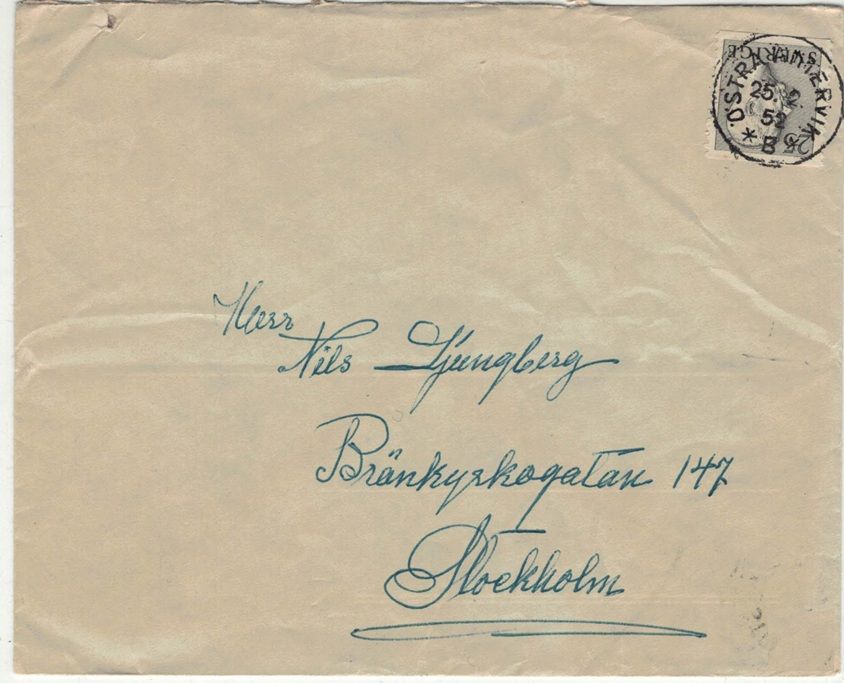 SVERIGE
25
ÖSTRA ÄMTERVIK
25. 2.
52
* B *
Herr
Nils Ljungberg
Bränkyrkogatan 147
Stockholm